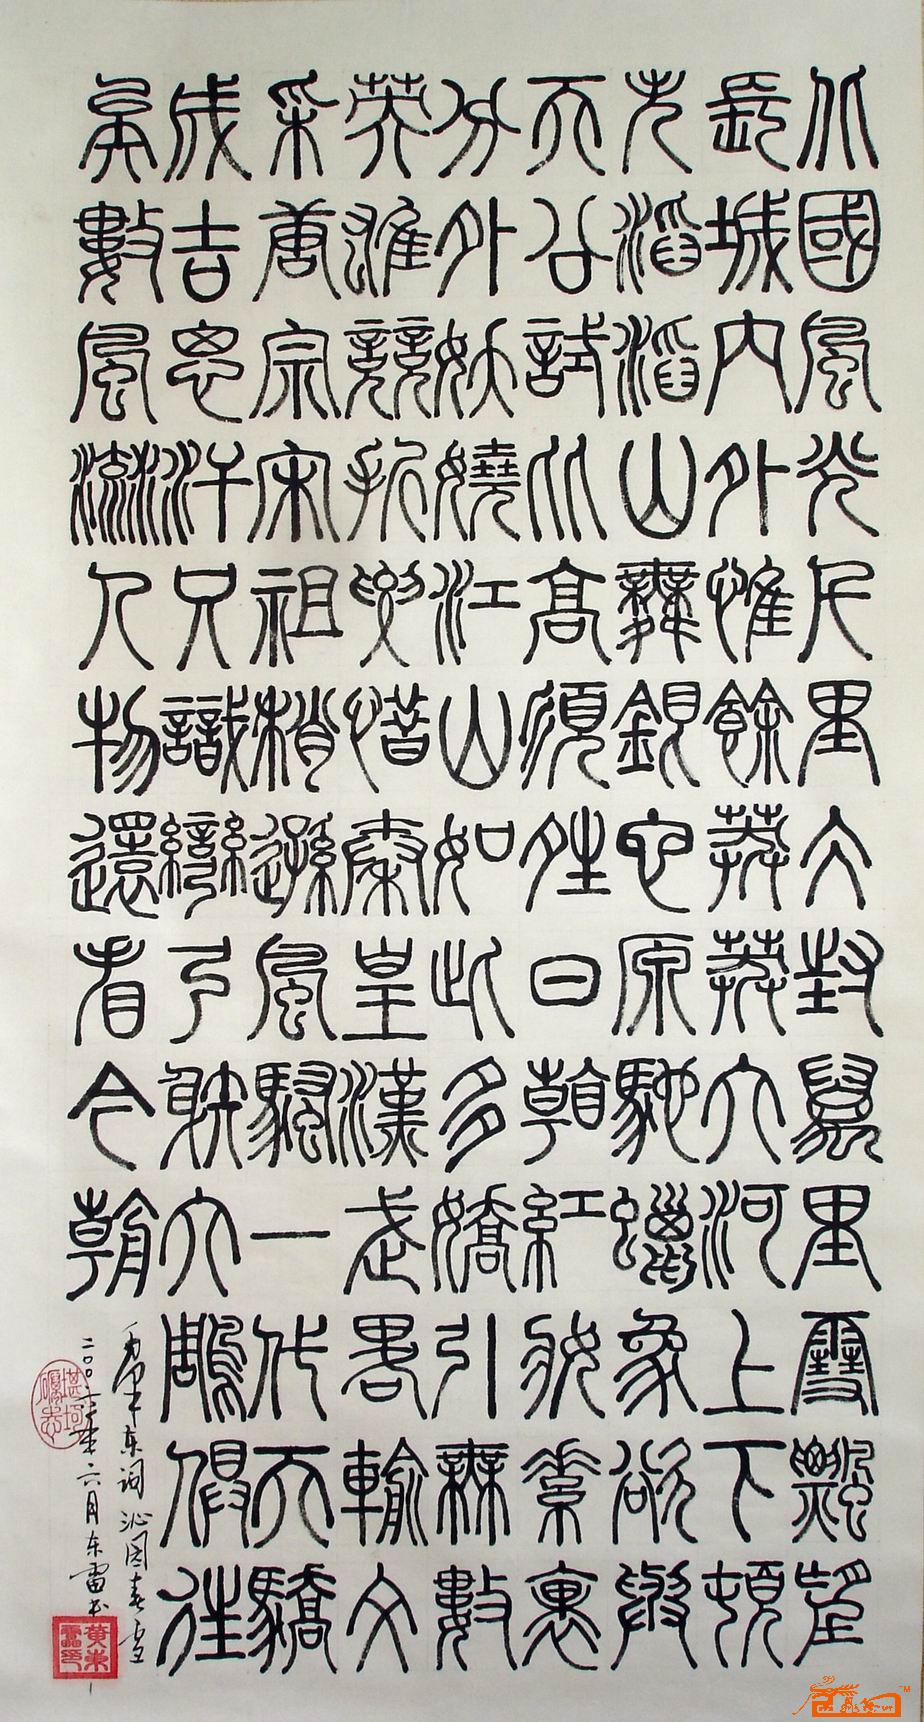 北國風光千里冰封萬里雪飄望
長城内外惟餘莽莽大河上下頓
失滔滔山舞銀蛇原馳蠟象欲與
天公試比高須晴日看紅妝素裹
分外妖嬈江山如此多嬌引無數
英雄競折腰惜秦皇漢武略輸文
采唐宗宋祖稍遜風騷一代天驕
成吉思汗只識彎弓射大雕俱往
矣數風流人物還看今朝
毛泽东词沁园春雪
二〇〇六年六月东雷书
黄東雷印